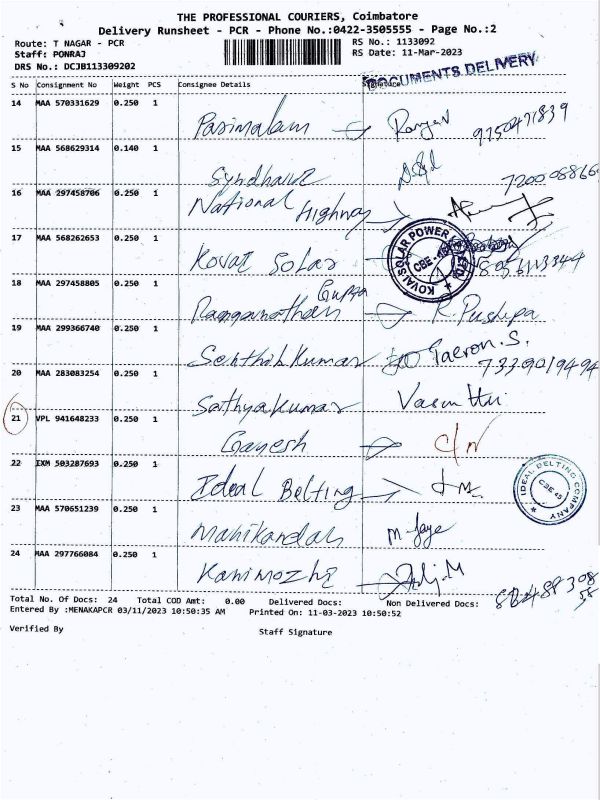 THE PROFESSIONAL COURIERS, Coimbatore
Delivery Runsheet - PCR - Phone No.:0422-3505555 - Page No.:2
Route: T NAGAR - PCR
Staff: PONRAJ
DRS No.: DCJB113309202
RS No.: 1133092
RS Date: 11-Mar-2023
DOCUMENTS DELIVERY
S No Consignment No Weight PCS Consignee Details Signature
14 MAA 570331629 0.250 1
Parimalam
15 MAA 568629314 0.140 1
16 MAA 297458706 0.250 1
National Highway
17 MAA 568262653 0.250 1
Kovai Solar
KOVAI SOLAR POWER
18 MAA 297458805 0.250 1
Gupta
Ranganathan R. Pushpa
19 MAA 299366740 0.250 1
Senthil Kumar
7339019494
20 MAA 283083254 0.250 1
Sathyakumar
21 VPL 941648233 0.250 1
Ganesh
22 IXM 503287693 0.250 1
Ideal Belting
IDEAL BELTING COMPANY
CBE-45
23 MAA 570651239 0.250 1
Manikandan
24 MAA 297766084 0.250 1
Kanimozhi
Total No. Of Docs: 24 Total COD Amt: 0.00 Delivered Docs: Non Delivered Docs:
Entered By :MENAKAPCR 03/11/2023 10:50:35 AM Printed On: 11-03-2023 10:50:52
Verified By Staff Signature